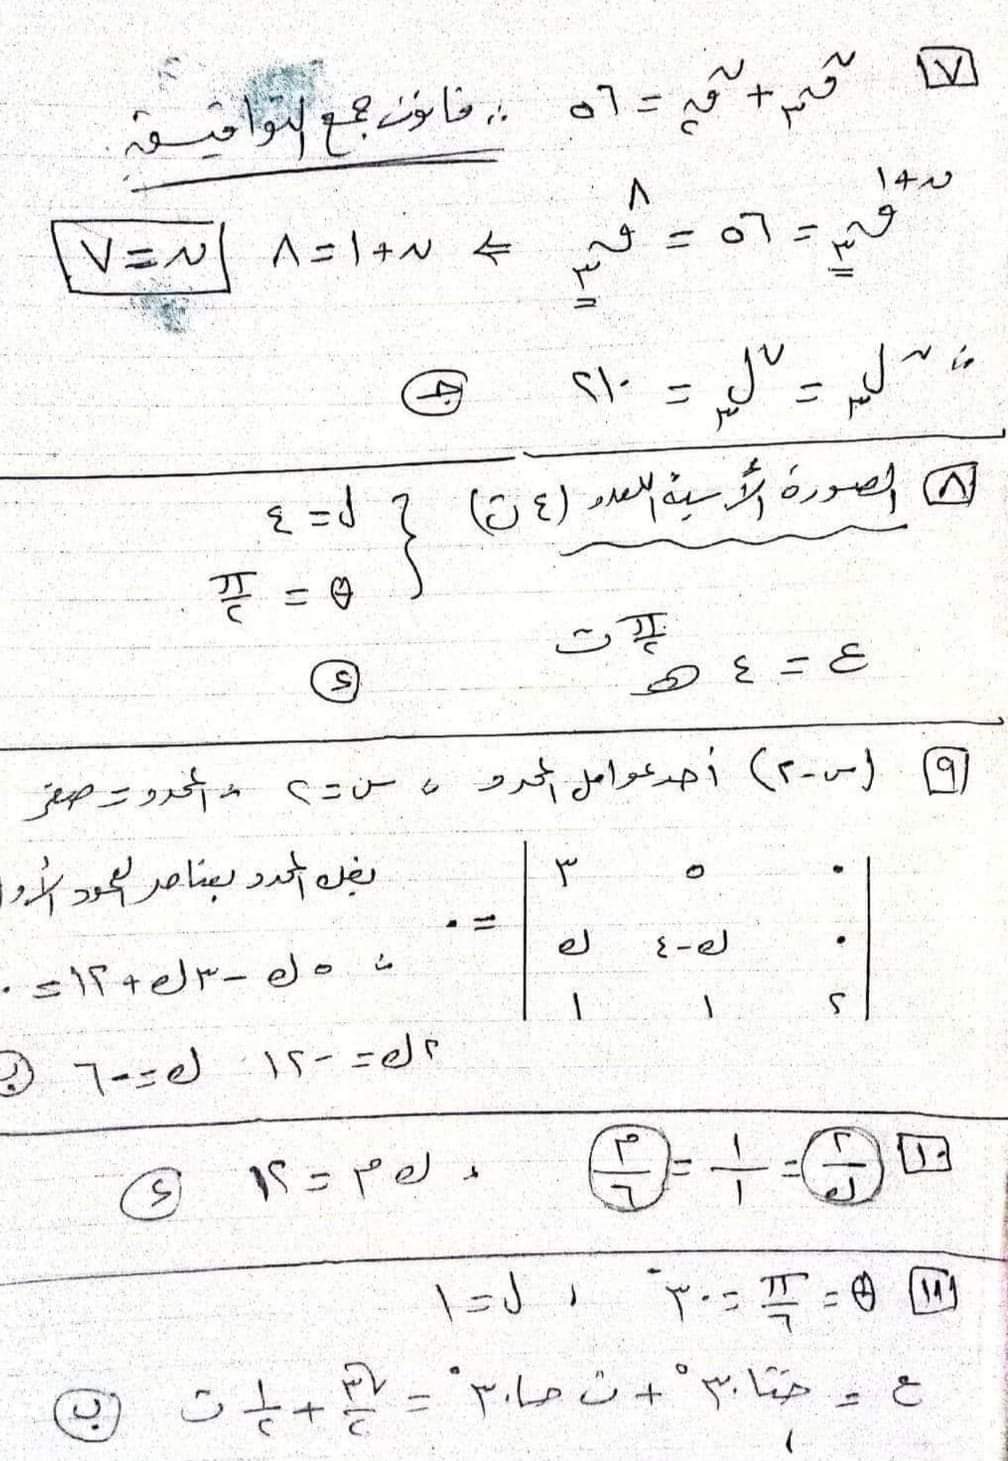 ٧ ن ق ٣ + ن ق ٢ = ٥٦ ∴ قانون جمع التوافيق
ن+١ ق ٣ = ٥٦ = ٨ ق ٣ ⇐ ن+١=٨ ن=٧
∴ ن ل ٣ = ٧ ل ٣ = ٢١٠ جـ
٨ الصورة الأسية للعدد (٤ت) } ل=٤
θ = π/٢
ع = ٤ هـ π/٢ ت ء
٩ (س-٢) أحد عوامل المحدد ، س=٢ ∴ المحدد = صفر
| ٠ ٥ ٣ | بفك المحدد بعناصر العمود الأول
| ٠ ك-٤ ك | = ٠
| ٢ ١ ١ | ∴ ٥ك - ٣ك + ١٢ = ٠
٢ك = -١٢ ك=-٦ ب
١٠ ٢/ك = ١/١ = م/٦ ، ك م = ١٢ ء
١١ θ = π/٦ = ٣٠° ، ل=١
ع = جتا٣٠° + ت حا٣٠° = √٣/٢ + ١/٢ ت ب